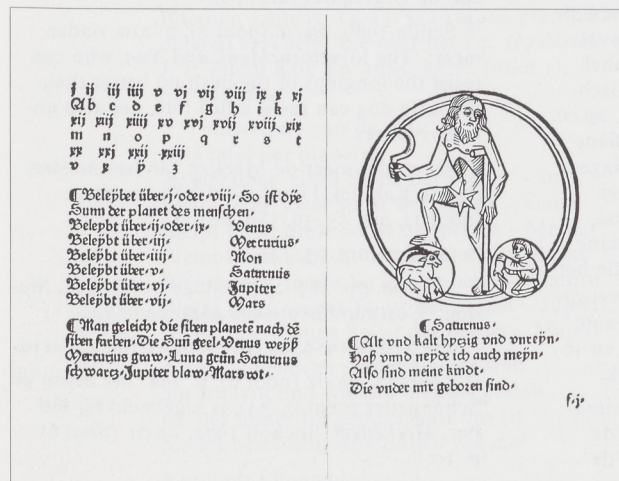 j ij iij iiij v vj vij viij ix x xj
Ab c d e f g h i k l
xij xiij xiiij xv xvj xvij xviij xix
m n o p q r s t
xx xxj xxij xxiij
v x ÿ ʒ
¶ Beleÿbet über·j·oder·viij· So ist dÿe
Sunn der planet des menschen·
Beleybt über·ij·oder·ix· Venus
Beleÿbt über·iij· Mercurius·
Beleÿbt über·iiij· Mon
Beleÿbt über·v· Saturnus
Beleÿbt über·vj· Jupiter
Beleÿbt über·vij· Mars
¶ Man geleicht die siben planetē nach dē
siben farben· Die Suñ geel·Venus weÿß
Mercurius graw·Luna grün Saturnus
schwartz·Jupiter blaw·Mars rot·
¶ Saturnus·
¶ Alt vnd kalt hytzig vnd vnreÿn·
Haß vnnd neÿde ich auch meÿn·
Also sind meine kindt·
Die vnder mir geboren sind·
f·j·